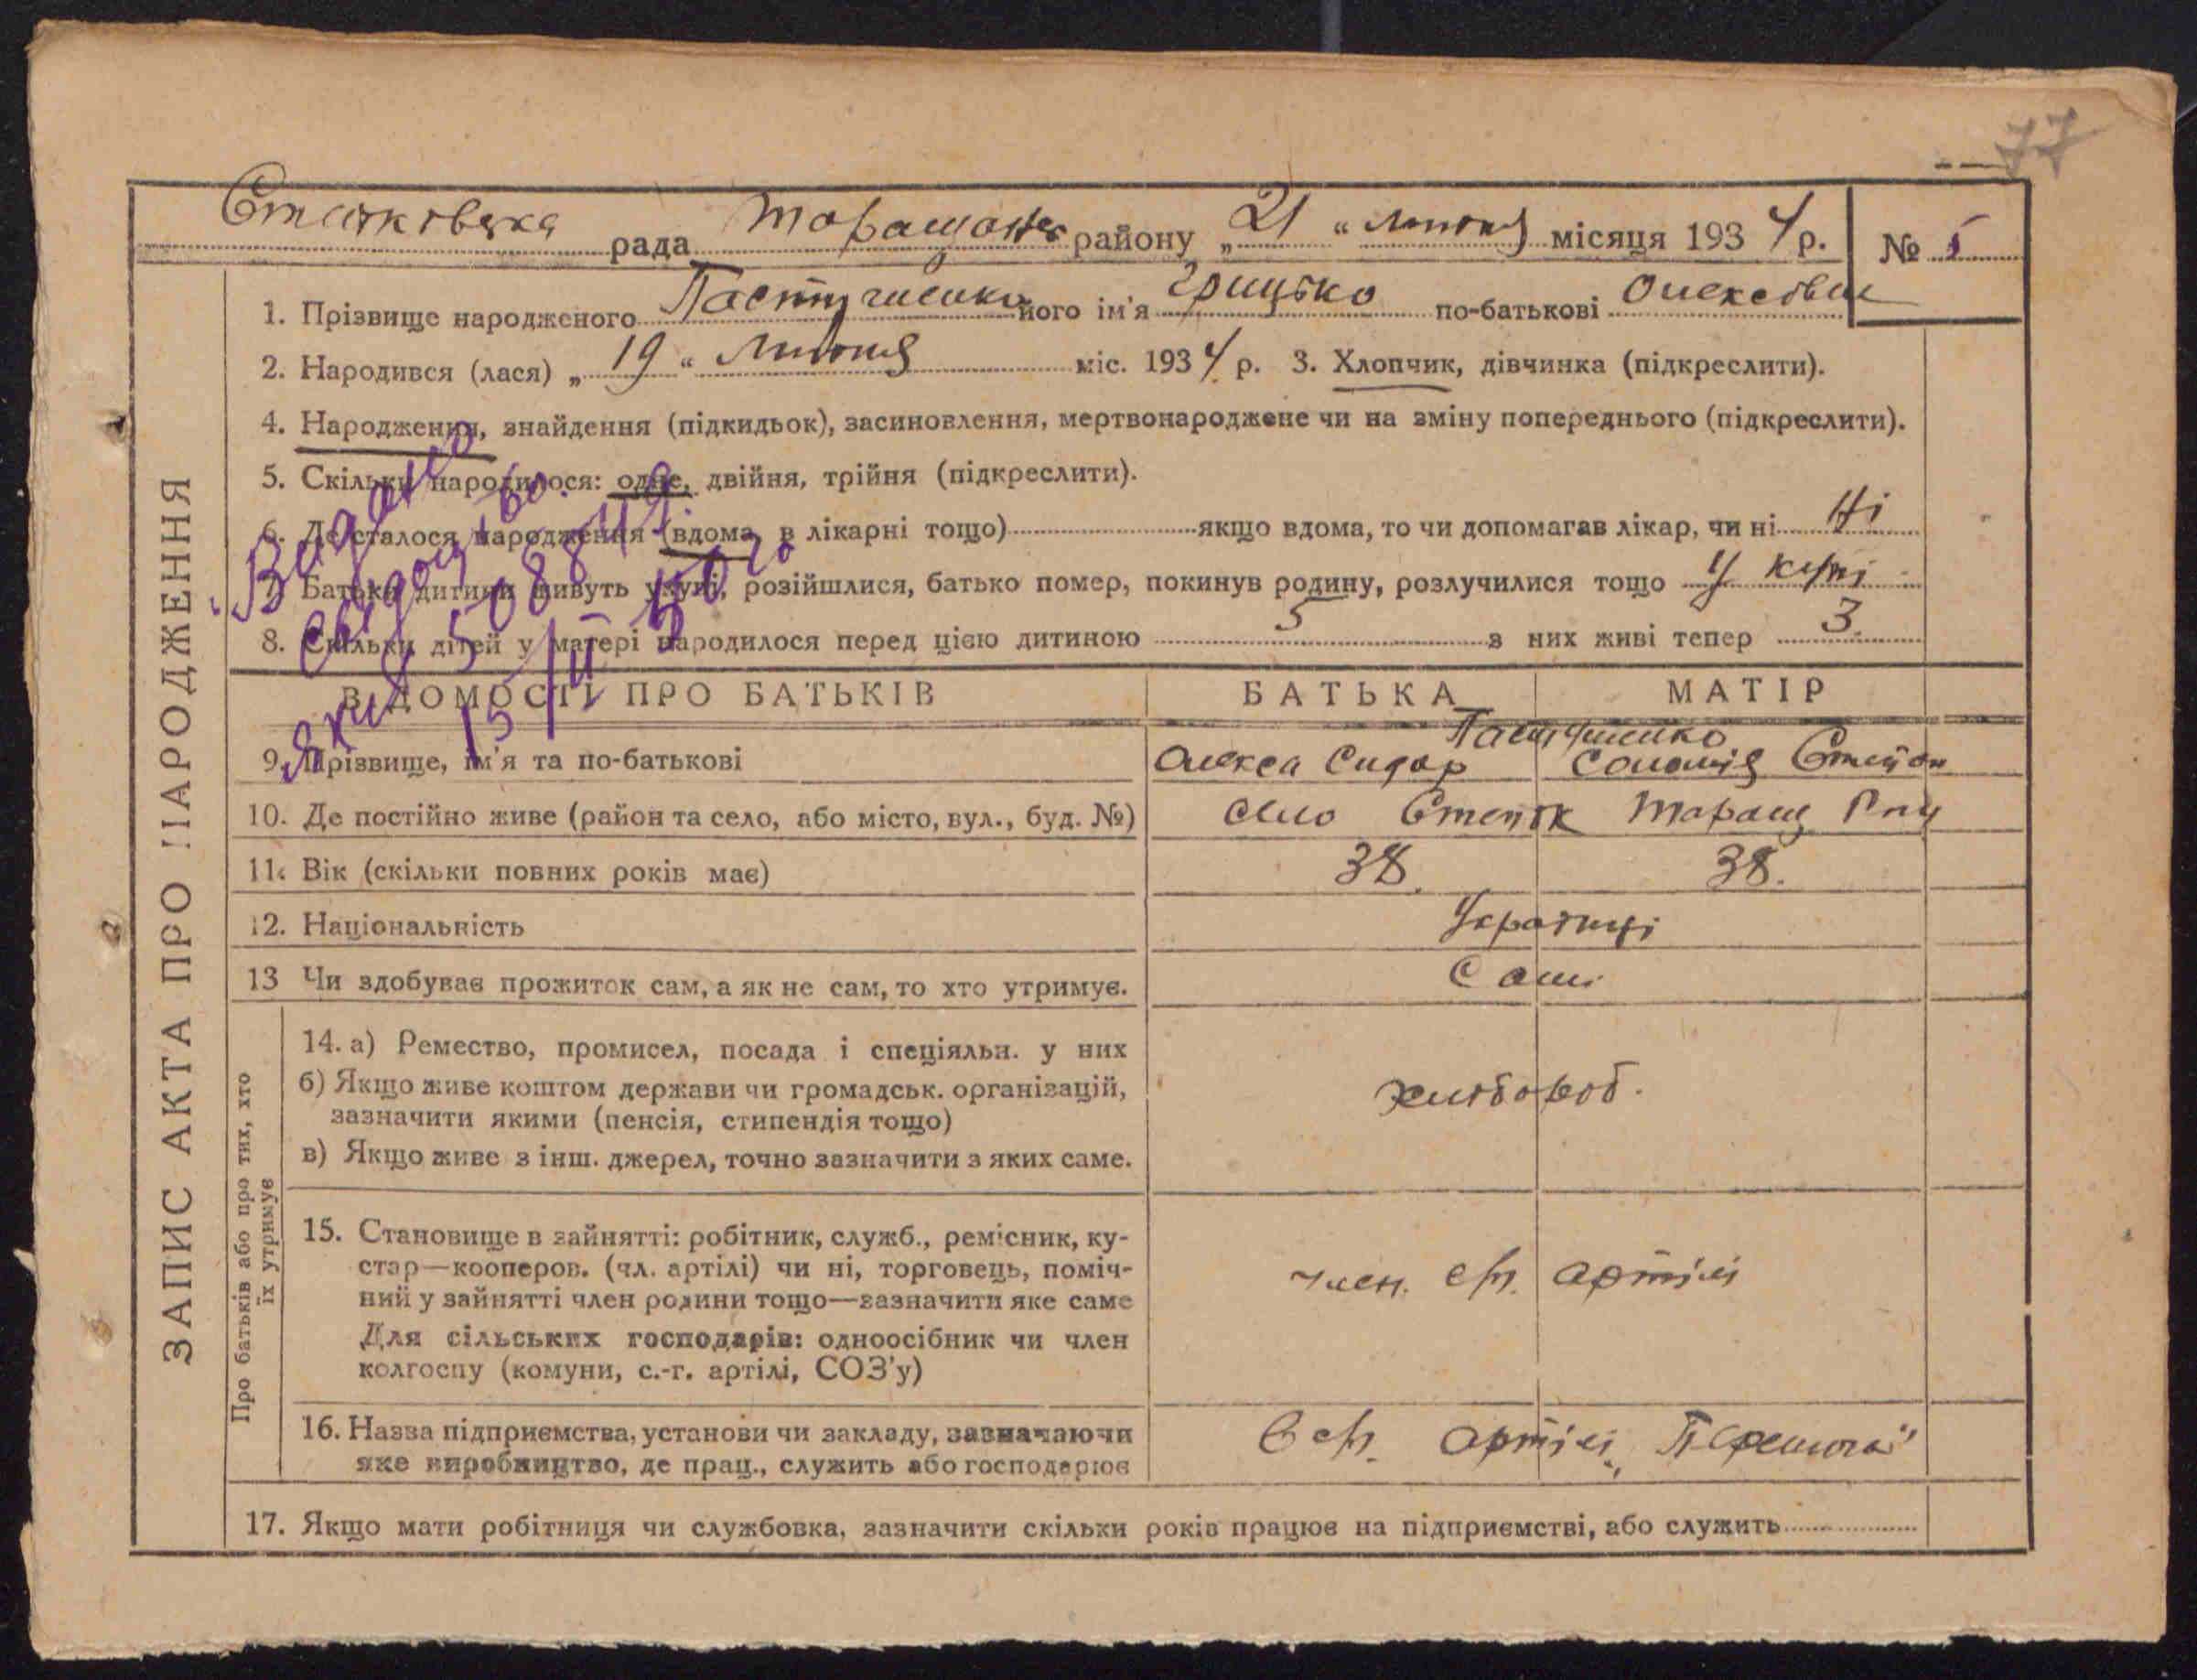 77
Степківська рада Таращанськ району „21“ липня місяця 1934 р. № 5
1. Прізвище народженого Пастушенко його ім'я Грицько по-батькові Олексович
2. Народився (лася) „19“ Липня міс. 1934 р. 3. Хлопчик, дівчинка (підкреслити).
4. Народження, знайдення (підкидьок), засиновлення, мертвонароджене чи на зміну попереднього (підкреслити).
5. Скільки народилося: одне, двійня, трійня (підкреслити).
6. Де сталося народження (вдома, в лікарні тощо) якщо вдома, то чи допомагав лікар, чи ні Ні
7. Батьки дитини живуть укупі, розійшлися, батько помер, покинув родину, розлучилися тощо У купі
8. Скільки дітей у матері народилося перед цією дитиною 5 з них живі тепер 3
Видано
ВІДОМОСТІ ПРО БАТЬКІВ БАТЬКА МАТІР
Пастушенко
9. Прізвище, ім'я та по-батькові Олекса Сидор Соломія Степан
10. Де постійно живе (район та село, або місто, вул., буд. №) село Степок Таращ Р-ну
11. Вік (скільки повних років має) 38. 38.
12. Національність Українці
13 Чи здобуває прожиток сам, а як не сам, то хто утримує. Самі
14. а) Ремество, промисел, посада і спеціяльн. у них
б) Якщо живе коштом держави чи громадськ. організацій,
зазначити якими (пенсія, стипендія тощо) хлібороб.
в) Якщо живе з інш. джерел, точно зазначити з яких саме.
15. Становище в зайнятті: робітник, служб., ремісник, ку-
стар—кооперов. (чл. артілі) чи ні, торговець, поміч-
ний у зайнятті член родини тощо—зазначити яке саме член. с/г. артілі
Для сільських господарів: одноосібник чи член
колгоспу (комуни, с.-г. артілі, СОЗ'у)
16. Назва підприємства, установи чи закладу, зазначаючи
яке виробництво, де прац., служить або господарює В с/г. артілі
17. Якщо мати робітниця чи службовка, зазначити скільки років працює на підприємстві, або служить
ЗАПИС АКТА ПРО НАРОДЖЕННЯ
Про батьків або про тих, хто
їх утримує